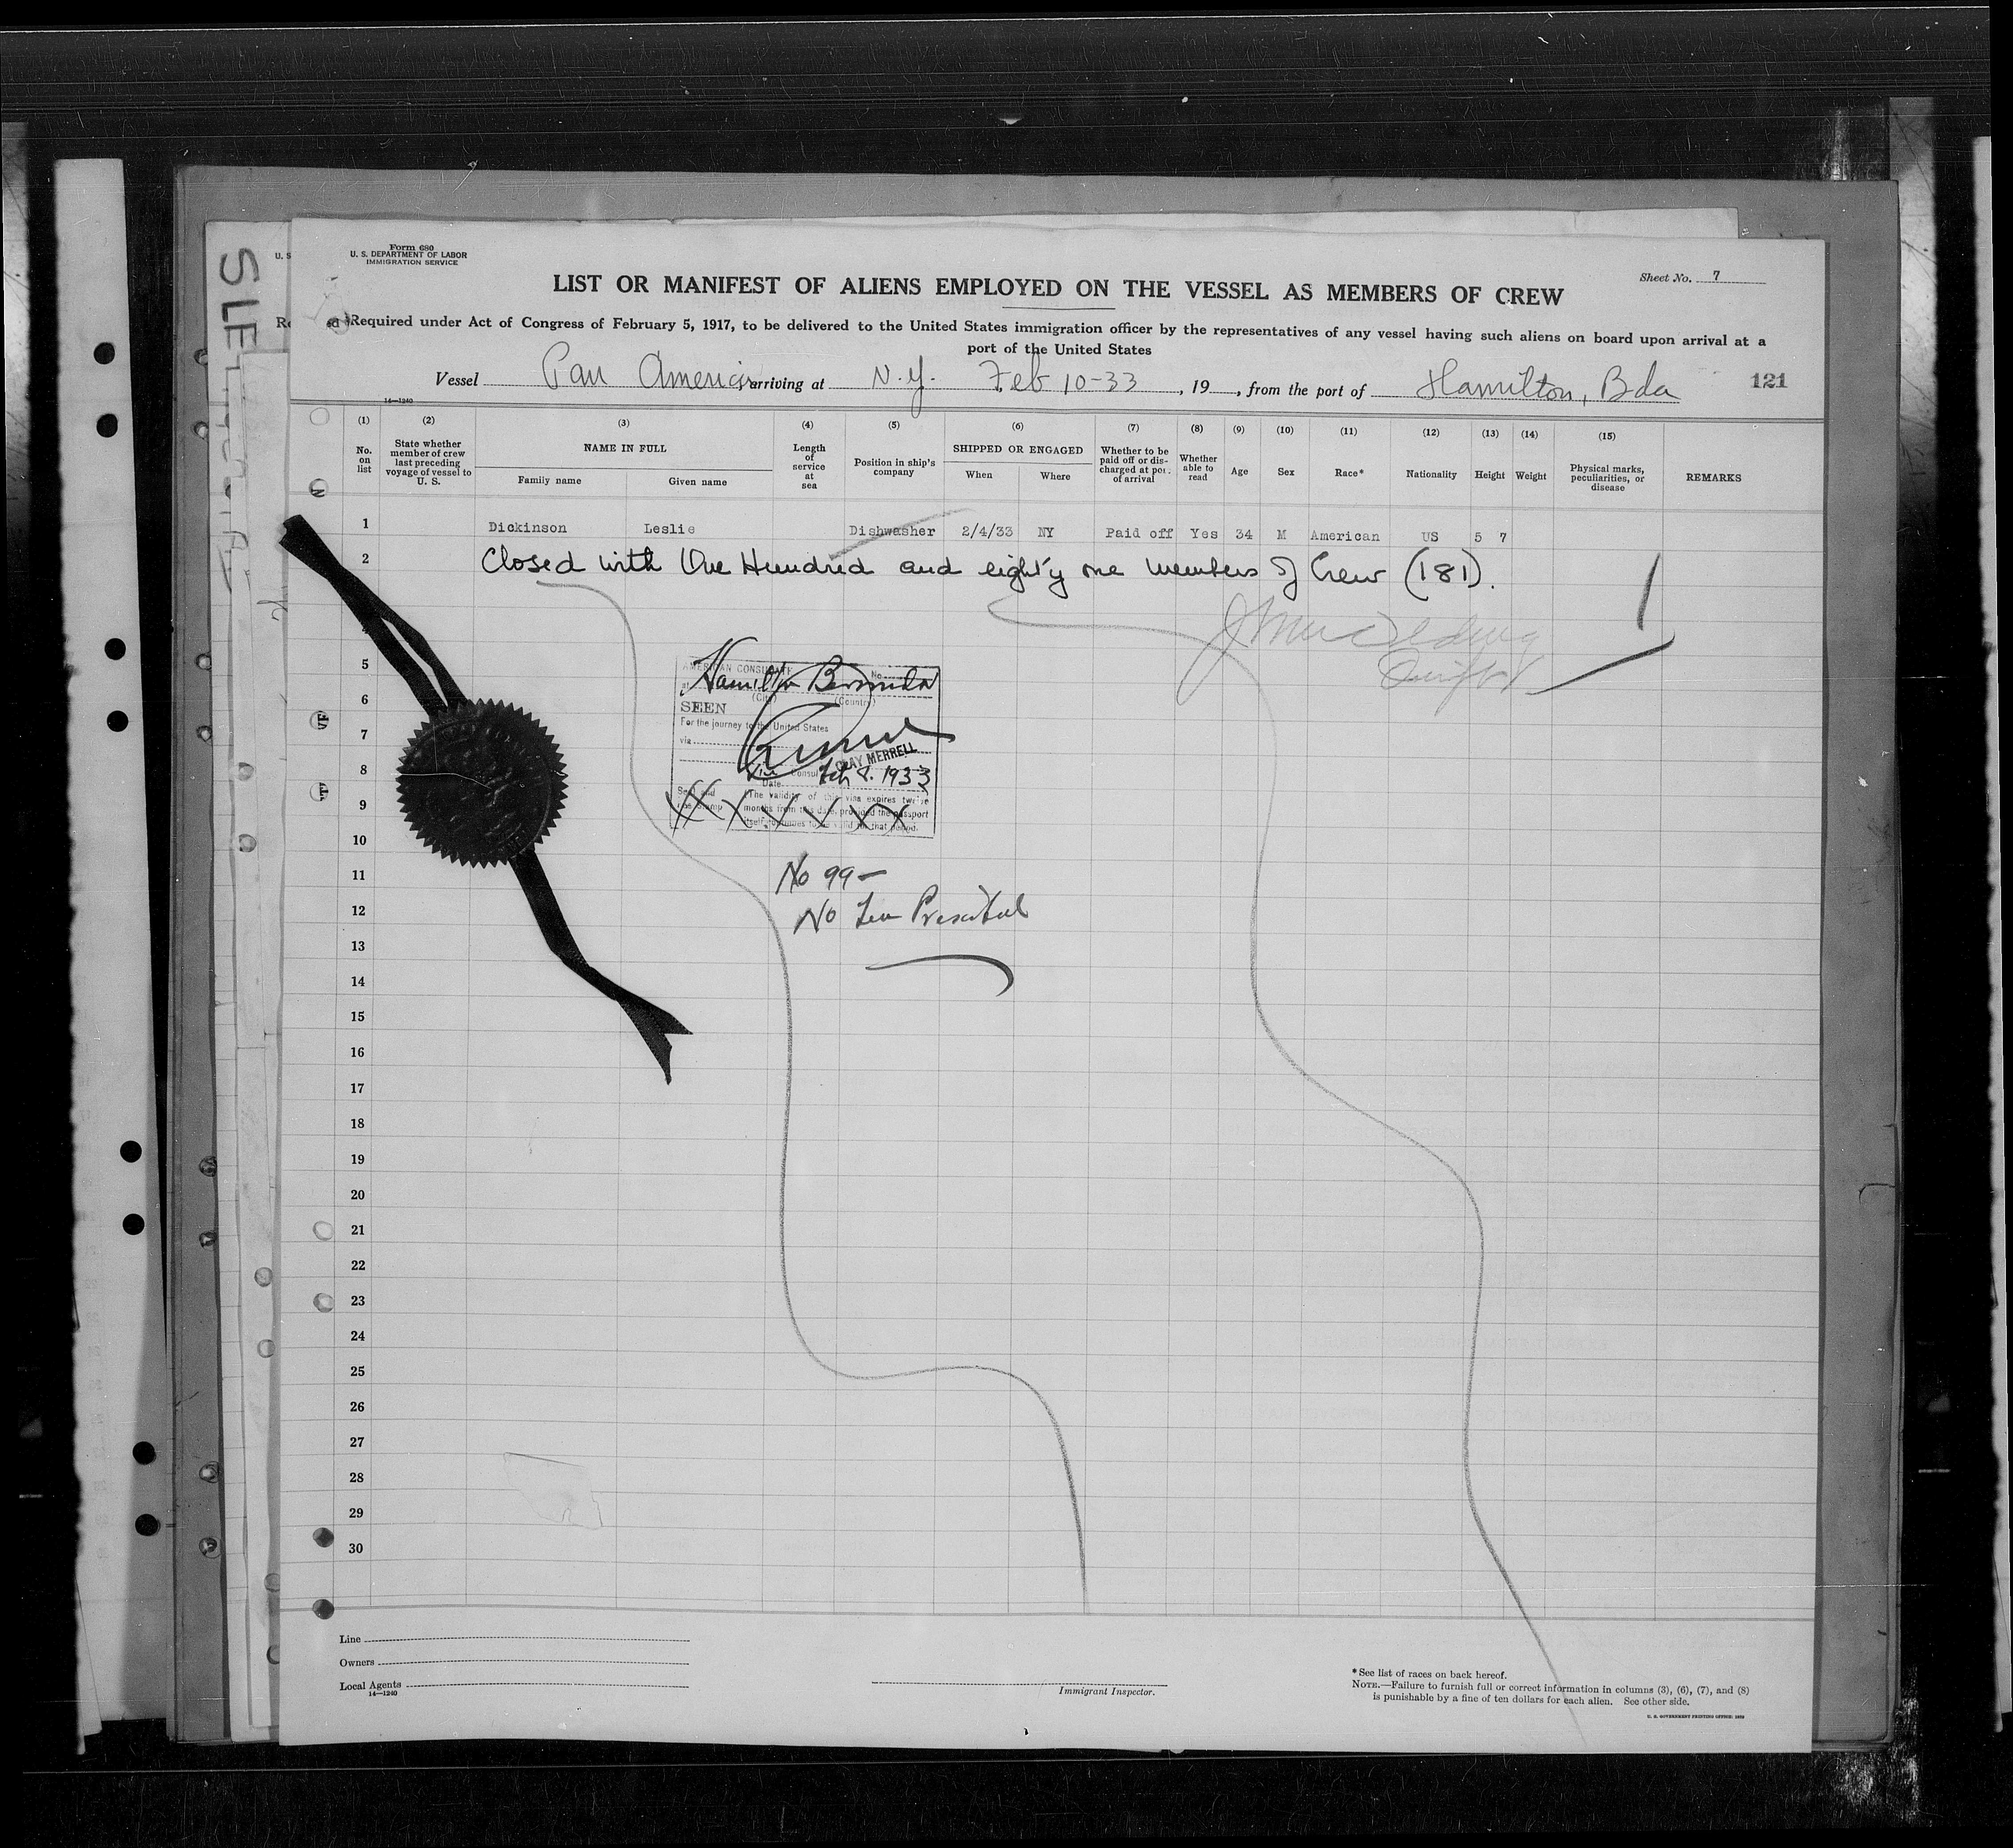 Form 680
U. S. DEPARTMENT OF LABOR
IMMIGRATION SERVICE
Sheet No. 7
LIST OR MANIFEST OF ALIENS EMPLOYED ON THE VESSEL AS MEMBERS OF CREW
Required under Act of Congress of February 5, 1917, to be delivered to the United States immigration officer by the representatives of any vessel having such aliens on board upon arrival at a
port of the United States
Vessel Pan America, arriving at N.Y. Feb 10-33, 19, from the port of Hamilton, Bda 121
14—1240
(1) (2) (3) (4) (5) (6) (7) (8) (9) (10) (11) (12) (13) (14) (15)
No. on list
State whether member of crew last preceding voyage of vessel to U. S.
NAME IN FULL
Family name Given name
Length of service at sea
Position in ship's company
SHIPPED OR ENGAGED
When Where
Whether to be paid off or discharged at port of arrival
Whether able to read
Age
Sex
Race*
Nationality
Height
Weight
Physical marks, peculiarities, or disease
REMARKS
1 Dickinson Leslie Dishwasher 2/4/33 NY Paid off Yes 34 M American US 5 7
2 Closed with One Hundred and eighty one members of Crew (181).
AMERICAN CONSULATE
at Hamilton Bermuda No.
(City) (Country)
SEEN
For the journey to the United States
via
CLAY MERRELL
Vice Consul
Date Feb 8. 1933
The validity of this visa expires twelve
months from this date, provided the passport
itself continues to be valid for that period.
No 99—
No Fee Prescribed
5
6
7
8
9
10
11
12
13
14
15
16
17
18
19
20
21
22
23
24
25
26
27
28
29
30
Line
Owners
Local Agents
14—1240
Immigrant Inspector.
* See list of races on back hereof.
NOTE.—Failure to furnish full or correct information in columns (3), (6), (7), and (8)
is punishable by a fine of ten dollars for each alien. See other side.